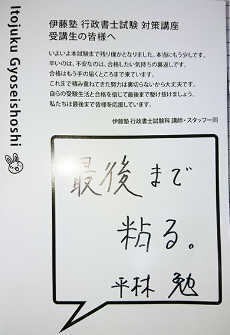 Itojuku Gyoseishoshi
伊藤塾 行政書士試験 対策講座
受講生の皆様へ
いよいよ本試験まで残り僅かとなりました。本当にもう少しです。
辛いのは、不安なのは、合格したい気持ちの裏返しです。
合格はもう手の届くところまで来ています。
これまで積み重ねてきた努力は裏切らないから大丈夫です。
自らの受験生活と合格を信じて最後まで駆け抜けましょう。
私たちは最後まで皆様を応援しています。
伊藤塾 行政書士試験科 講師・スタッフ一同
最後まで
粘る。
平林 勉